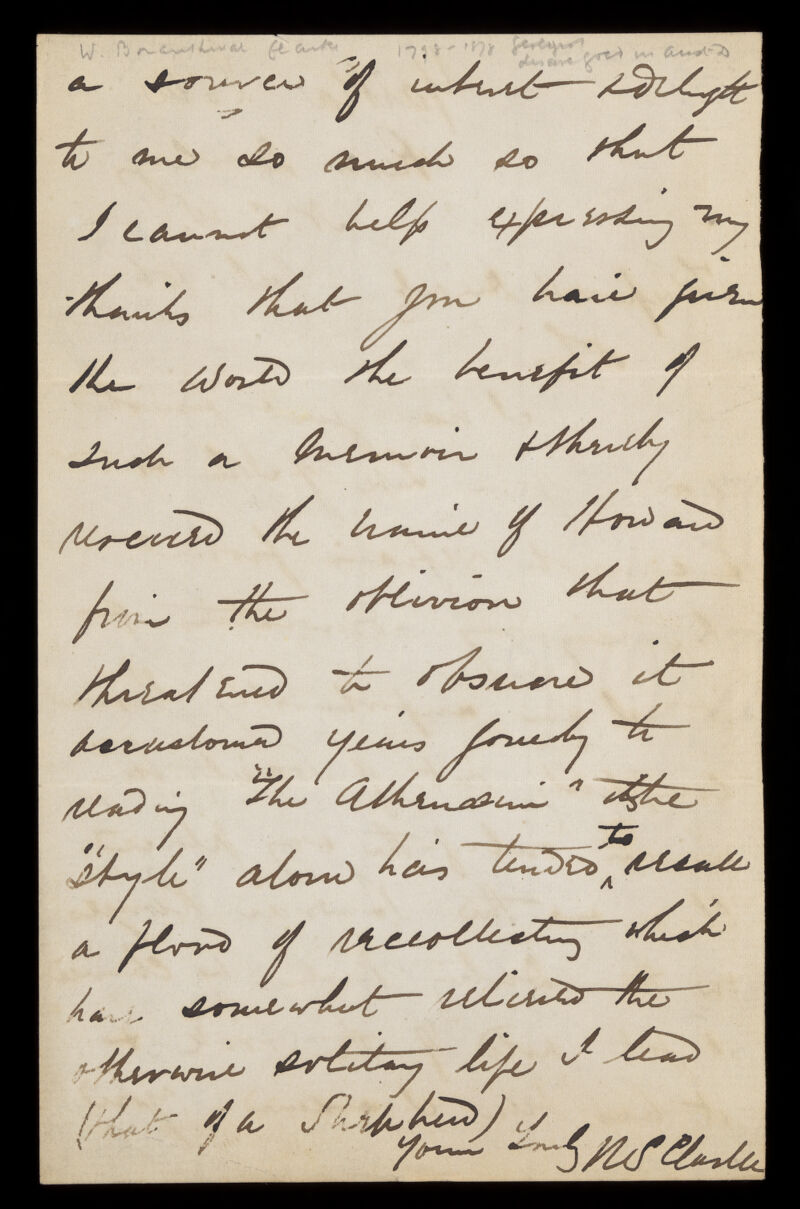 W. Clarke 1798-1878 geologist
gold in
a source of interest & delight
to me so much so that
I cannot help expressing my
thanks that you have given
the world the benefit of
such a memoir & thereby
the name of Howard
from the oblivion that
threatened to obscure it
accustomed years formerly to
reading "The Athenaeum" the
"style" alone has tended to recall
a flood of recollecting which
have somewhat relieved the
otherwise solitary life I lead
(that of a Shepherd)
Yours truly Clarke